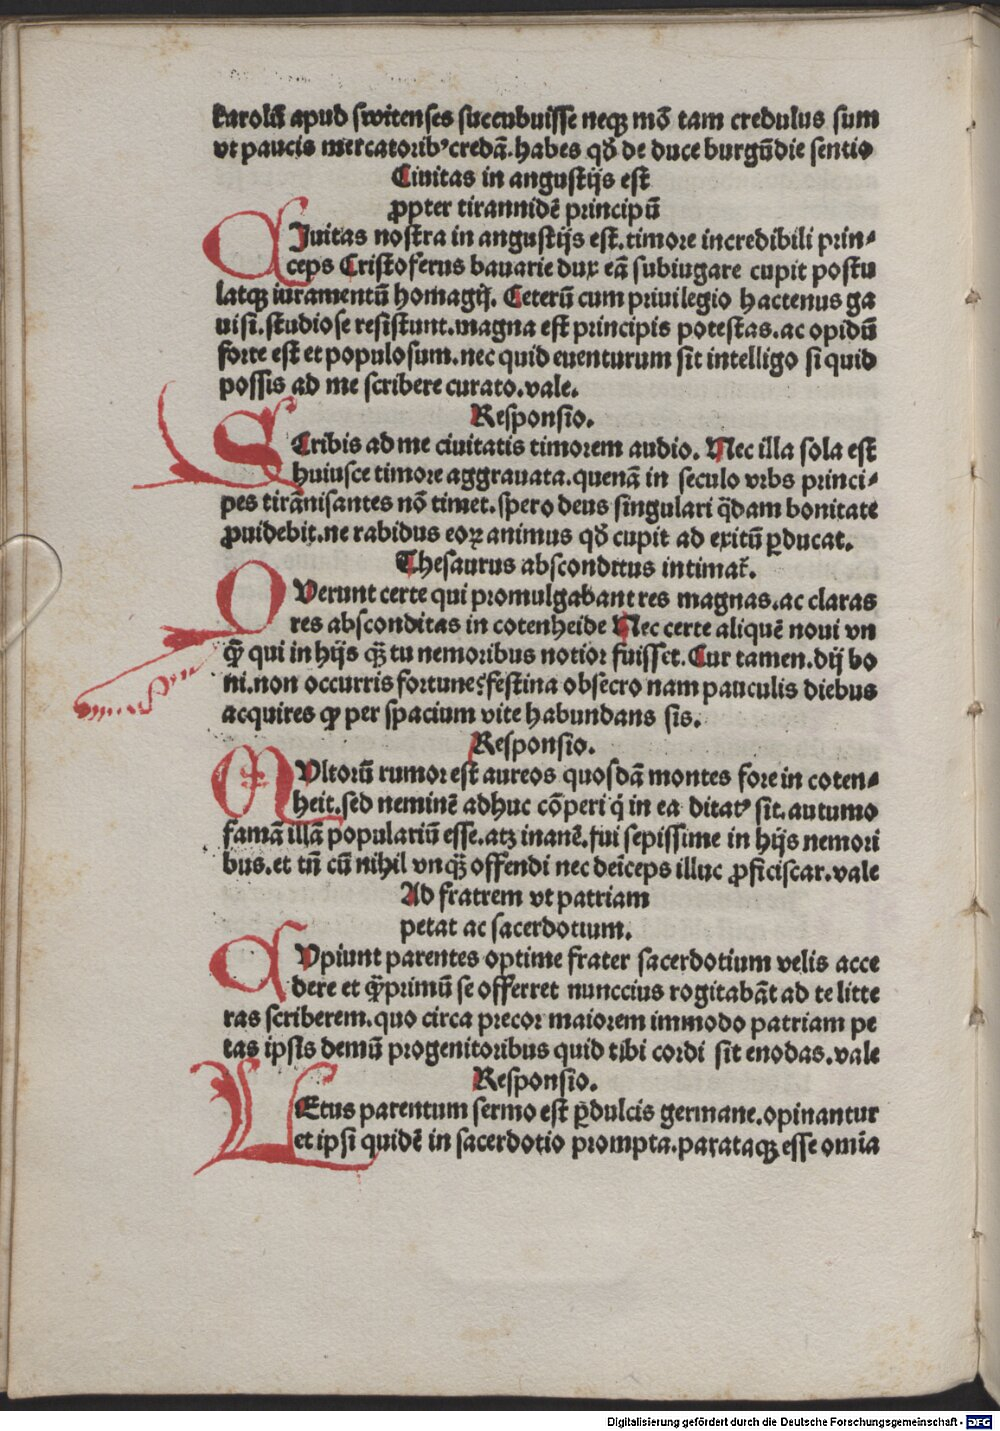 karolū apud switenses succubuisse neqꝫ mō tam credulus sum
vt paucis mercatorib⁹ credā. habes qď de duce burgūdie sentio
Ciuitas in angustijs est
ꝓpter tirannidē principū
CIuitas nostra in angustijs est. timore incredibili prin⸗
ceps Cristoferus bauarie dux eā subiugare cupit postu
latqꝫ iuramentū homagij. Ceterū cum priuilegio hactenus ga
uisi. studiose resistunt. magna est principis potestas. ac opidū
forte est et populosum. nec quid euenturum sit intelligo si quid
possis ad me scribere curato. vale.
Responsio.
SCribis ad me ciuitatis timorem audio. Nec illa sola est
huiusce timore aggrauata. quenā in seculo vrbs princi⸗
pes tirānisantes nō timet. spero deus singulari q̄dam bonitate
ꝓuidebit. ne rabidus eoꝝ animus qď cupit ad exitū ꝑducat.
Thesaurus absconditus intimat̄.
QVerunt certe qui promulgabant res magnas. ac claras
res absconditas in cotenheide Nec certe aliquē noui vn
q̄ꝫ qui in hijs qꝫ̄ tu nemoribus notior fuisset. Cur tamen. dij bo
ni. non occurris fortune? festina obsecro nam pauculis diebus
acquires qꝫ per spacium vite habundans sis.
Responsio.
MVltorū rumor est aureos quosdā montes fore in coten⸗
heit. sed neminē adhuc cōperi q̇ in ea ditat⁹ sit. autumo
famā illā populariū esse. atꝫ inanē. fui sepissime in hijs nemori
bus. et tn̄ cū nihil vnqꝫ̄ offendi nec deīceps illuc ꝓficiscar. vale
Ad fratrem vt patriam
petat ac sacerdotium.
CVpiunt parentes optime frater sacerdotium velis acce
dere et q̄ꝫprimū se offerret nunccius rogitabāt ad te litte
ras scriberem. quo circa precor maiorem immodo patriam pe
tas ipsis demū progenitoribus quid tibi cordi sit enodas. vale
Responsio.
LEtus parentum sermo est p̄dulcis germane. opinantur
et ipsi quidē in sacerdotio prompta. parataqꝫ esse omīa
Digitalisierung gefördert durch die Deutsche Forschungsgemeinschaft - DFG